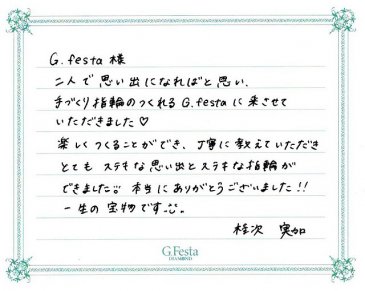 G.festa 様
二人で思い出になればと思い、
手づくり指輪のつくれるG.festaに来させて
いただきました♡
楽しくつくることができ、丁寧に教えていただき
とても ステキな思い出とステキな指輪が
できました!! 本当にありがとうございました!!
一生の宝物です。
桂次 実加
G.Festa
DIAMOND